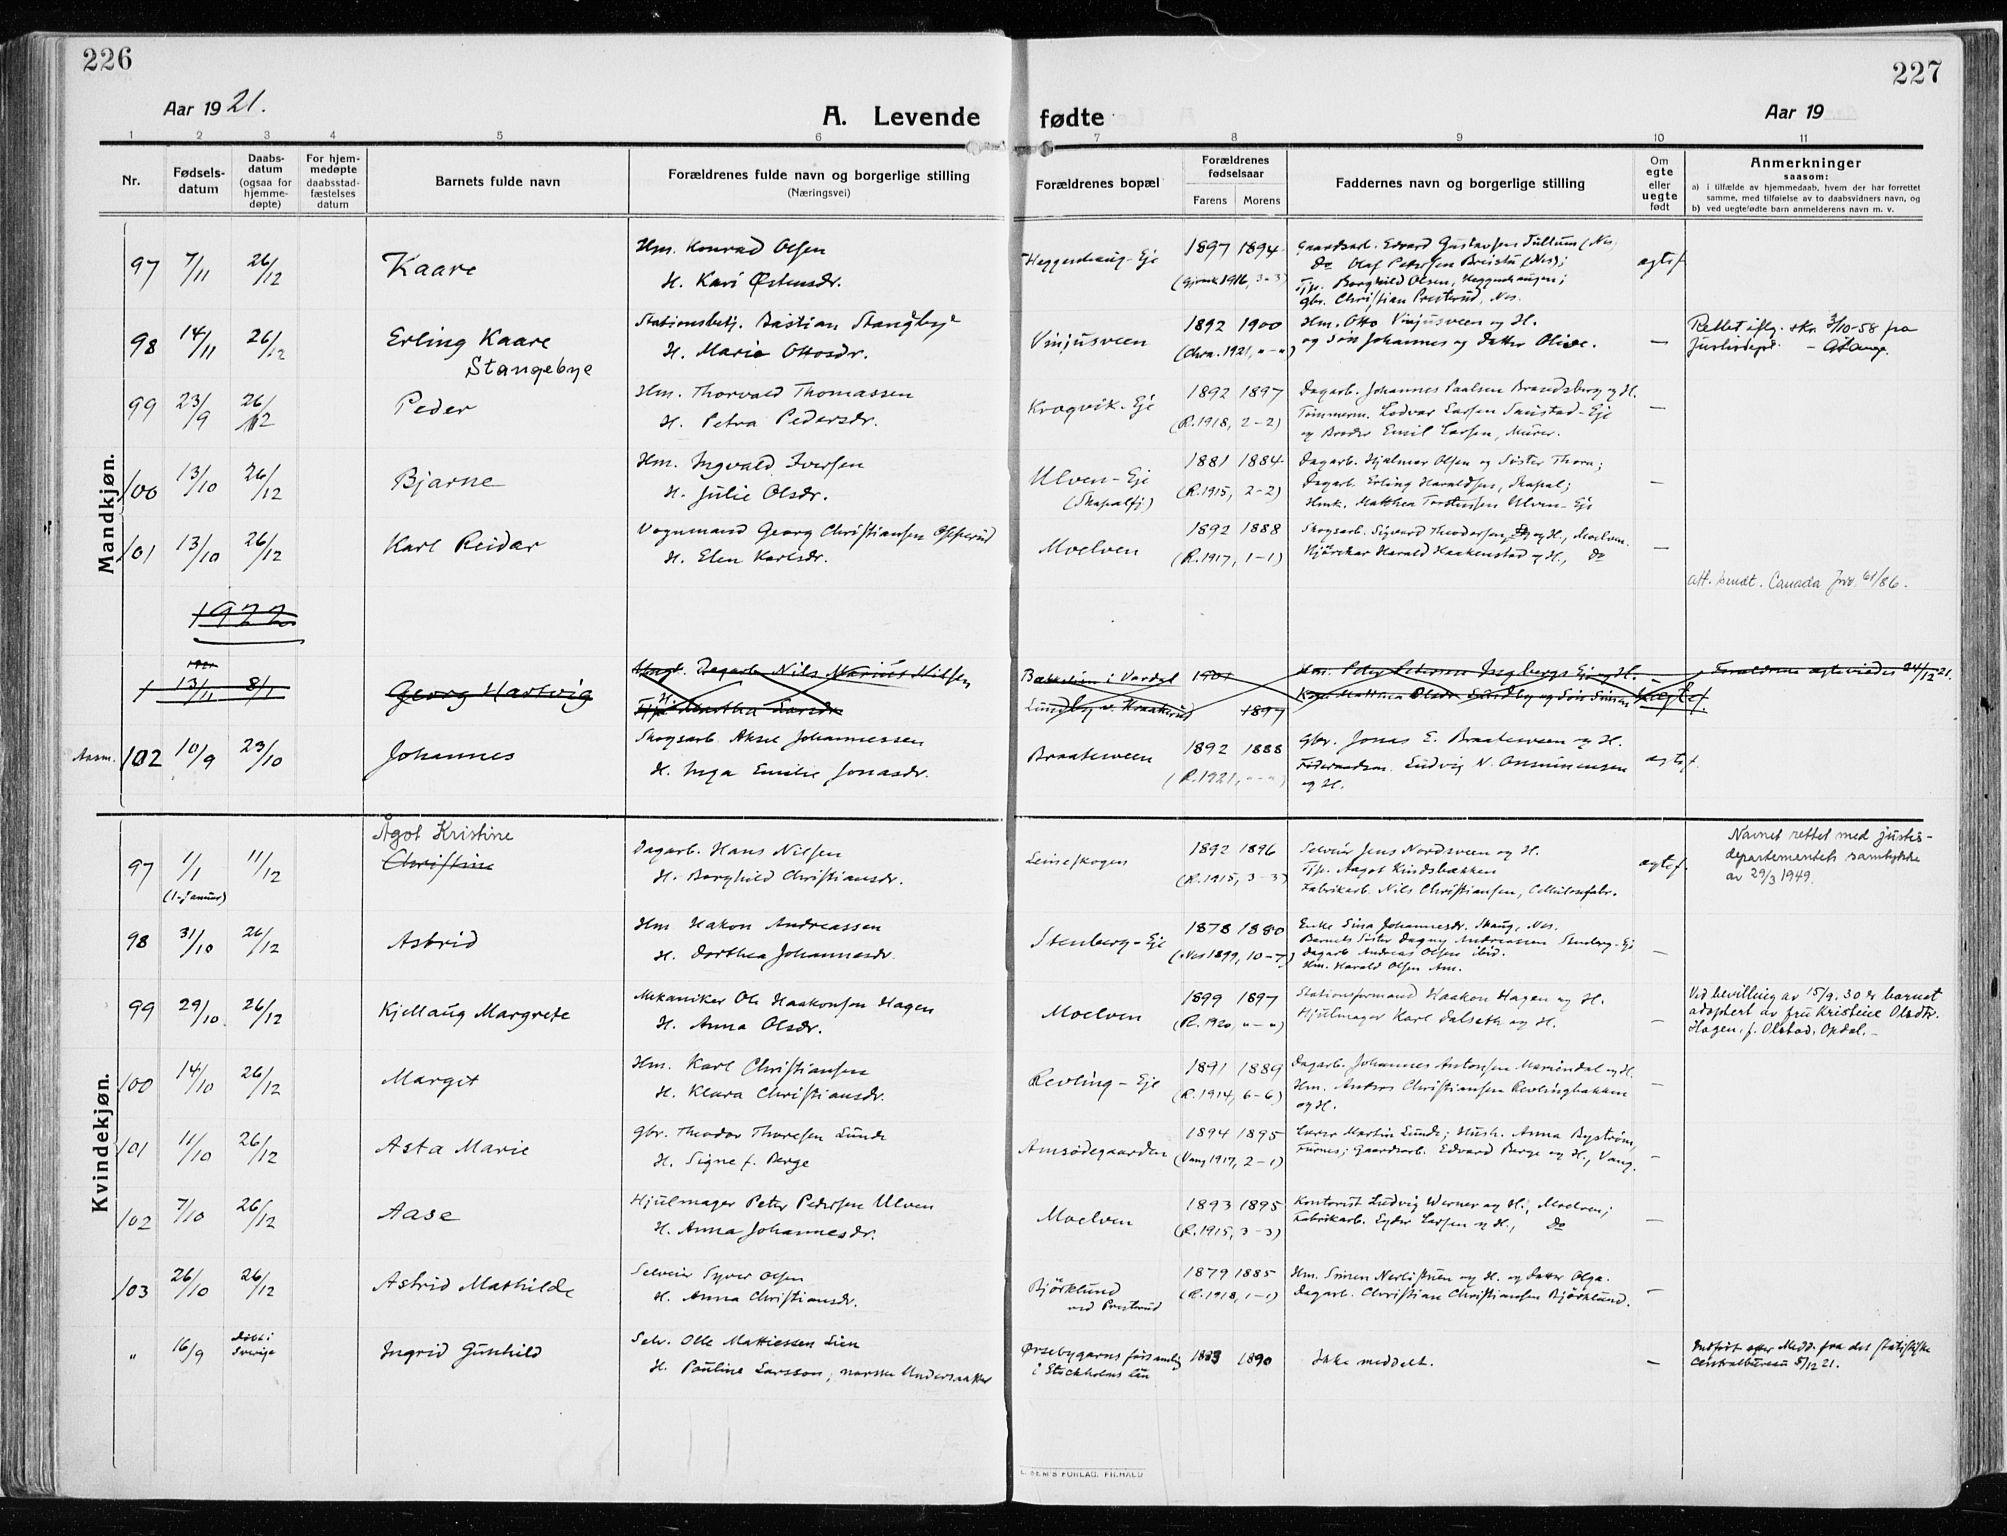 226
227
Aar 1921.
A. Levende fødte
Aar 19
1 2 3 4 5 6 7 8 9 10 11
Nr.
Fødsels-
datum
Daabs-
datum
(ogsaa for
hjemme-
døpte)
For hjem-
medøpte
daabsstad-
fæstelses
datum
Barnets fulde navn
Forældrenes fulde navn og borgerlige stilling
(Næringsvei)
Forældrenes bopæl
Forældrenes
fødselsaar
Farens Morens
Faddernes navn og borgerlige stilling
Om
egte
eller
uegte
født
Anmerkninger
saasom:
a) i tilfælde av hjemmedaab, hvem der har forrettet
samme, med tilføielse av to daabsvidners navn, og
b) ved uegtefødte barn anmelderens navn m. v.
Mandkjøn.
97 7/11 26/12 Kaare
Hm. Konrad Olsen
H. Kari Østensdr.
Heggenhaug-Eje
1897 1894
Gaardsarb. Edvard Gustavsen Tullum (Nes)
Do Olaf Petersen Breistu (Nes);
Tjp. Borghild Olsen, Heggenhaugen;
gbr. Christian Presterud, Nes.
egtef.
98 14/11 26/12 Erling Kaare
Stangebye
Stationsbetj. Bastian Stangbye
H. Marie Ottosdr.
Vinjusveen
1892 1900
Hm. Otto Vinjusveen og H.
og Søn Johannes og Datter Olise.
—
Rettet iflg. skr. 3/10-58 fra
Justisdept.
99 23/9 26/12 Peder
Hm. Thorvald Thomassen
H. Petra Pedersdr.
Krogvik-Eje
1892 1897
(R. 1918, 2-2)
Dagarb. Johannes Paulsen Brandsberg og H.
Tømmerm. Lodvar Larsen Saustad-Eje
og Broder Emil Larsen, Murer.
—
100 13/10 26/12 Bjarne
Hm. Ingvald Iversen
H. Julie Olsdr.
Ulven-Eje
(Skapalfj.)
1881 1884
(R. 1915, 2-2)
Dagarb. Hjalmar Olsen og Søster Thora;
Dagarb. Erling Haraldsen, Skapal;
Hmk. Matthea Torstensen Ulven-Eje
—
101 13/10 26/12 Karl Reidar
Vognmand Georg Christiansen Opperud
H. Elen Karlsdr.
Moelven
1892 1888
(R. 1917, 1-1)
Skogsarb. Sigvard Theodorsen og H., Moelven.
Harald Haakenstad og H., Do
—
att. sendt. Canada Jnr. 61/86.
1922
1921
1 13/11 8/1 Georg Hartvig
Ungk. Dagarb. Nils Marius Nilsen
Bakkelien i Vardal
1901
Forældrene egteviedes 24/12 21.
H.
Lundby v. Kraakerud
1897
102 10/9 23/10 Johannes
Skogsarb. Aksel Johannessen
H. Inga Emilie Jonasdr.
Braateveen
1892 1888
(R. 1921, "-")
gbr. Jonas E. Braateveen og H.
Ludvig N. Onsumengen
og H.
egtef.
Kvindekjøn.
97 1/1 11/12 Ågot Kristine
(1-januar) Christine
Dagarb. Hans Nilsen
H. Borghild Christiansdr.
Leineskogen
1892 1896
(R. 1915, 3-3)
Selveier Jens Nordsveen og H.
Tjp. Aagot Kindsbækken
Fabrikarb. Nils Christiansen, Cellulosefabr.
egtef.
Navnet rettet med justis-
departementets samtykke
av 29/3 1949.
98 31/10 26/12 Astrid
Hm Hakon Andreassen
H. Dorthea Johannesdr.
Stenberg-Eje
1878 1880
(Nes 1899, 10-7)
Enke Lina Johannesdr. Skaug, Nes.
Barnets Søster Dagny Andreassen Stenberg-Eje
Dagarb. Andreas Olsen ibid.
Hm. Harald Olsen Am.
—
99 29/10 26/12 Kjellaug Margrete
Mekaniker Ole Haakonsen Hagen
H. Anna Olsdr.
Moelven
1899 1897
(R. 1920, "-")
Stationsformand Haakon Hagen og H.
Hjulmager Karl Dalseth og H.
—
Ved bevilling av 15/9.30 er barnet
adoptert av fru Kristine Olsdtr.
Hagen, f. Olstad, Opdal.-
100 14/10 26/12 Margit
Hm. Karl Christiansen
H. Klara Christiansdr.
Revling-Eje
1891 1889
(R. 1914, 6-6)
Dagarb. Johannes Antonsen Mariendal og H.
Hm. Anders Christiansen Revlingbakken
og H.
—
101 11/10 26/12 Asta Marie
gbr. Theodor Thoresen Lunde
H. Signe f. Berge
Amsødegaarden
1894 1895
(Vang 1917, 2-1)
Lærer Martin Lunde; Hush. Anna Byström,
Furnes; Gaardsarb. Edvard Berge og H., Vang.
—
102 7/10 26/12 Aase
Hjulmager Peter Pedersen Ulven
H. Anna Johannesdr.
Moelven
1893 1895
(R. 1915, 3-3)
Kontorist Ludvig Werner og H., Moelven;
Fabrikarb. Syver Larsen og H., Do
—
103 26/10 26/12 Astrid Mathilde
Selveier Syver Olsen
H. Anna Christiansdr.
Björklund
ved Presterud
1879 1885
(R. 1918, 1-1)
Hm. Simen Nerlistuen og H. og Datter Olga.
Dagarb. Christian Christiansen Björklund.
—
" 16/9 Døbt i
Sverige
Ingrid Gunhild
Selv. Olle Mattiessen Lien
H. Pauline Larsson; norske Undersaatter
Ørsebygarns församling
i Stockholms län
1883 1890
Ikke meddelt.
—
Indført efter Medd. fra det statistiske
Centralbureau 5/12 21.
E. SEM'S FORLAG, FR.HALD